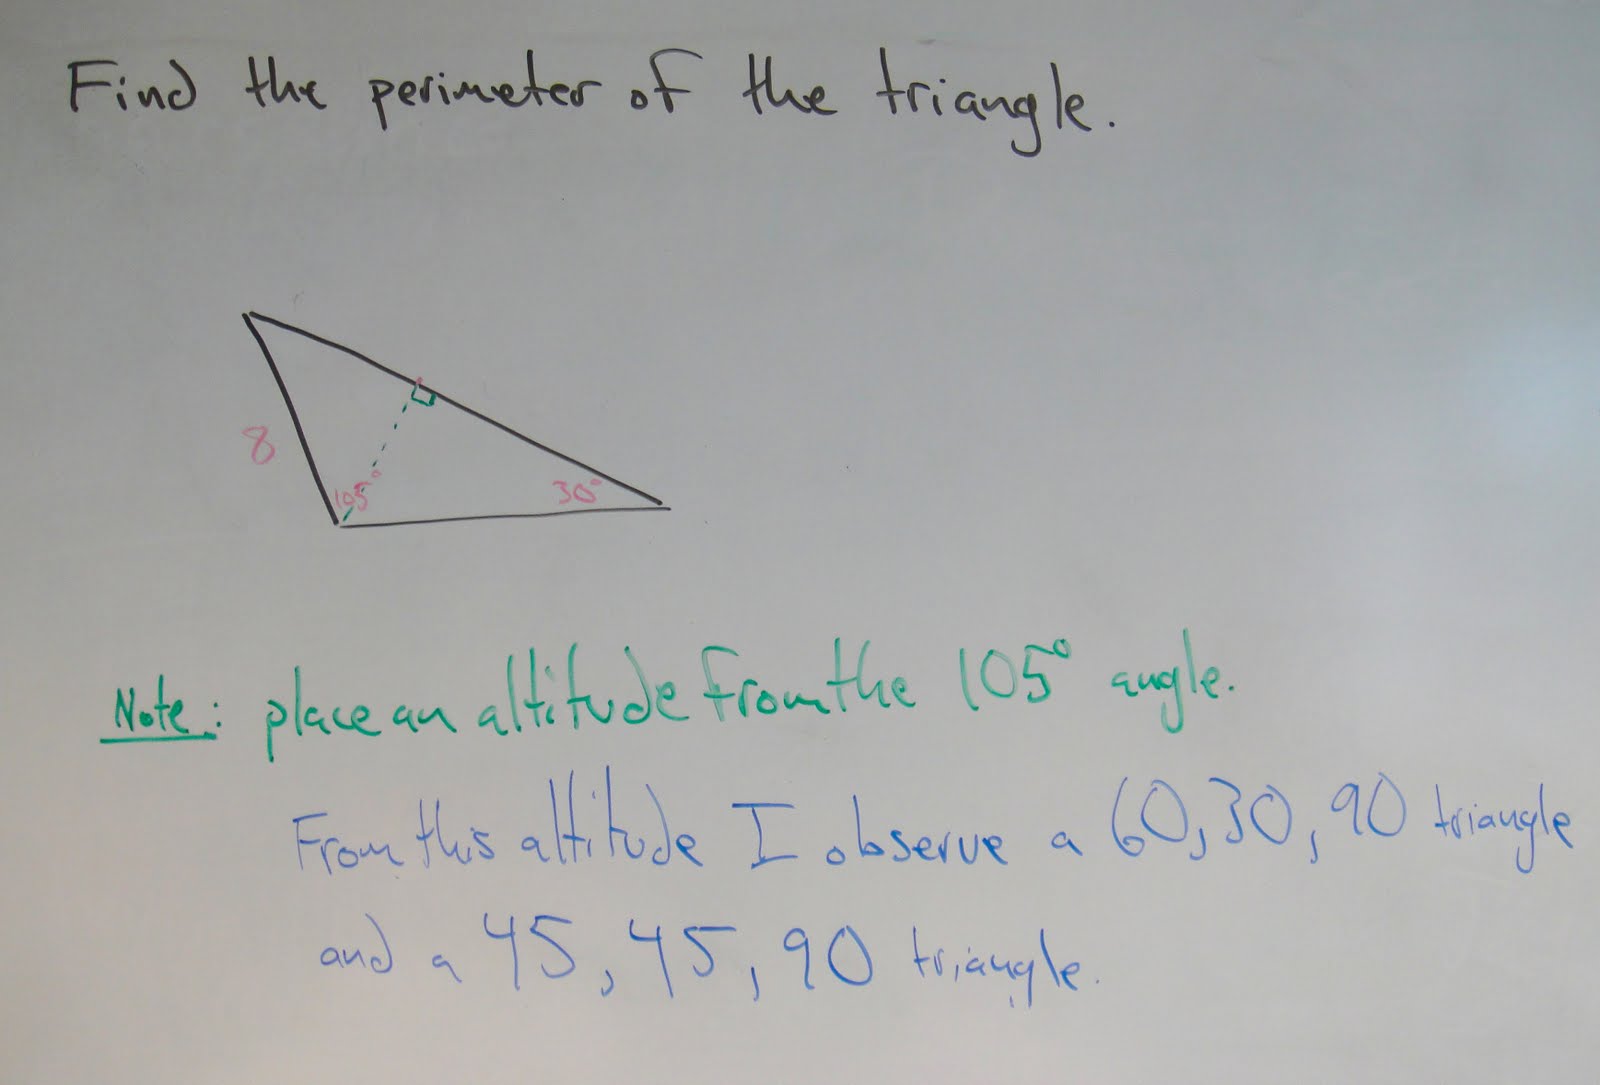 Find the perimeter of the triangle.
8
105°
30°
Note: place an altitude from the 105° angle.
From this altitude I observe a 60, 30, 90 triangle
and a 45, 45, 90 triangle.